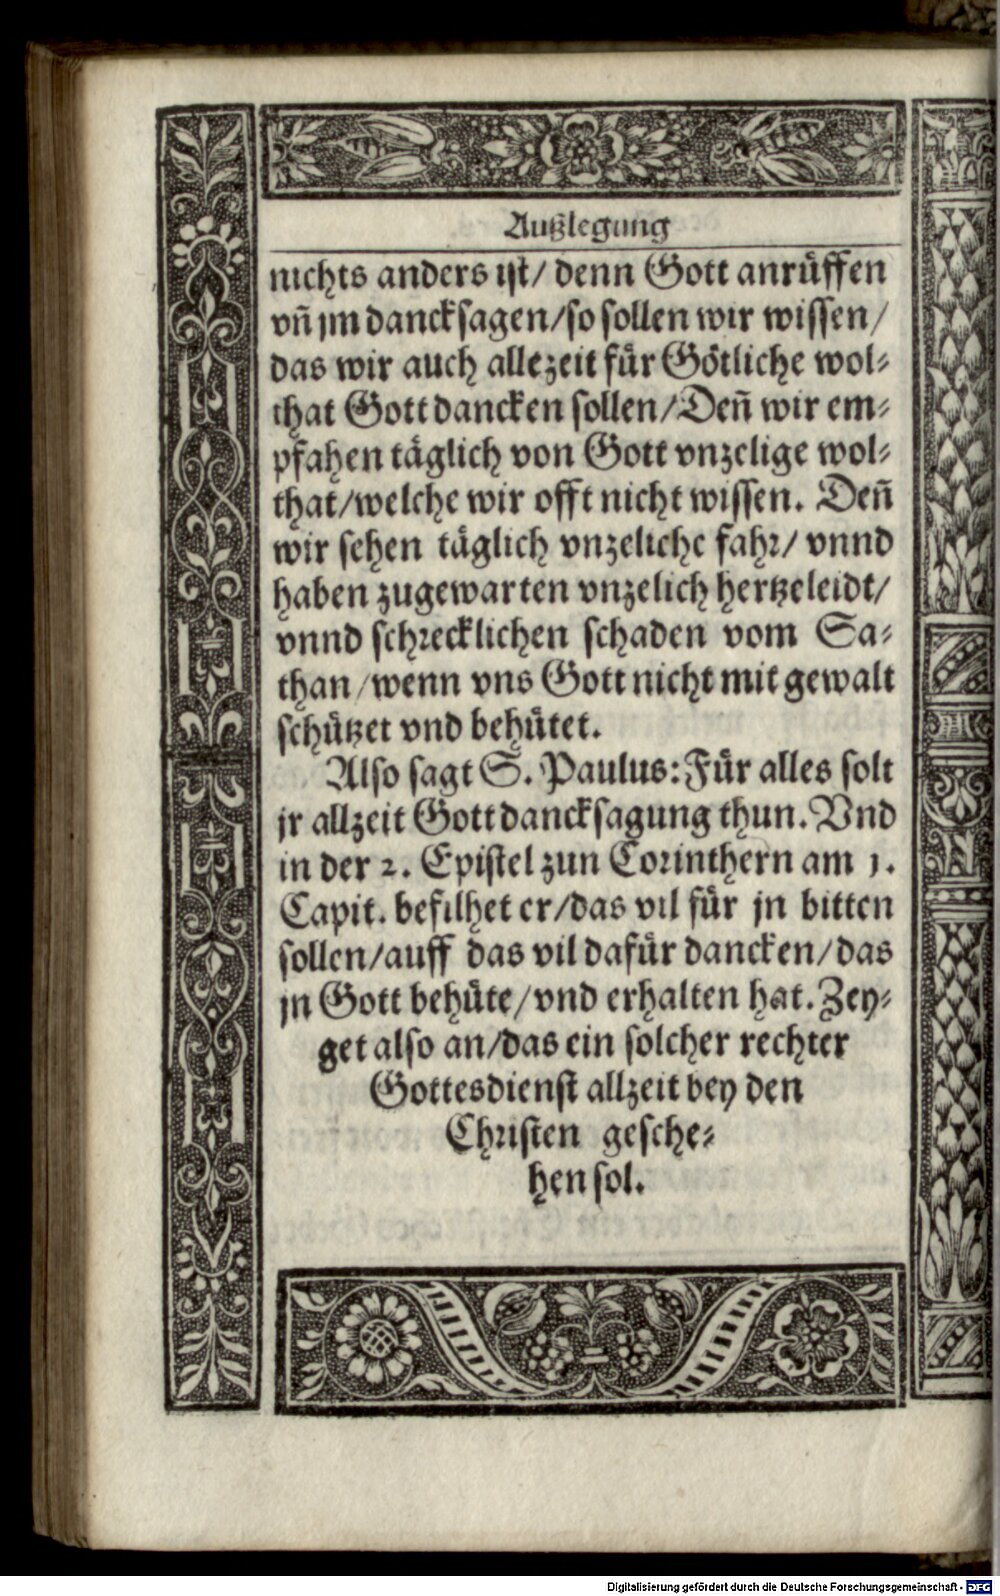 Außlegung
nichts anders ist/ denn Gott anrüffen
vñ jm dancksagen/so sollen wir wissen/
das wir auch allezeit für Götliche wol⸗
that Gott dancken sollen/Deñ wir em⸗
pfahen täglich von Gott vnzelige wol⸗
that/welche wir offt nicht wissen. Deñ
wir sehen täglich vnzeliche fahr/ vnnd
haben zugewarten vnzelich hertzeleidt/
vnnd schrecklichen schaden vom Sa⸗
than/wenn vns Gott nicht mit gewalt
schützet vnd behütet.
Also sagt S. Paulus: Für alles solt
jr allzeit Gott dancksagung thun. Vnd
in der 2. Epistel zun Corinthern am 1.
Capit. befilhet er/das vil für jn bitten
sollen/auff das vil dafür dancken/das
jn Gott behüte/vnd erhalten hat. Zey⸗
get also an/das ein solcher rechter
Gottesdienst allzeit bey den
Christen gesche⸗
hen sol.
Digitalisierung gefördert durch die Deutsche Forschungsgemeinschaft - DFG